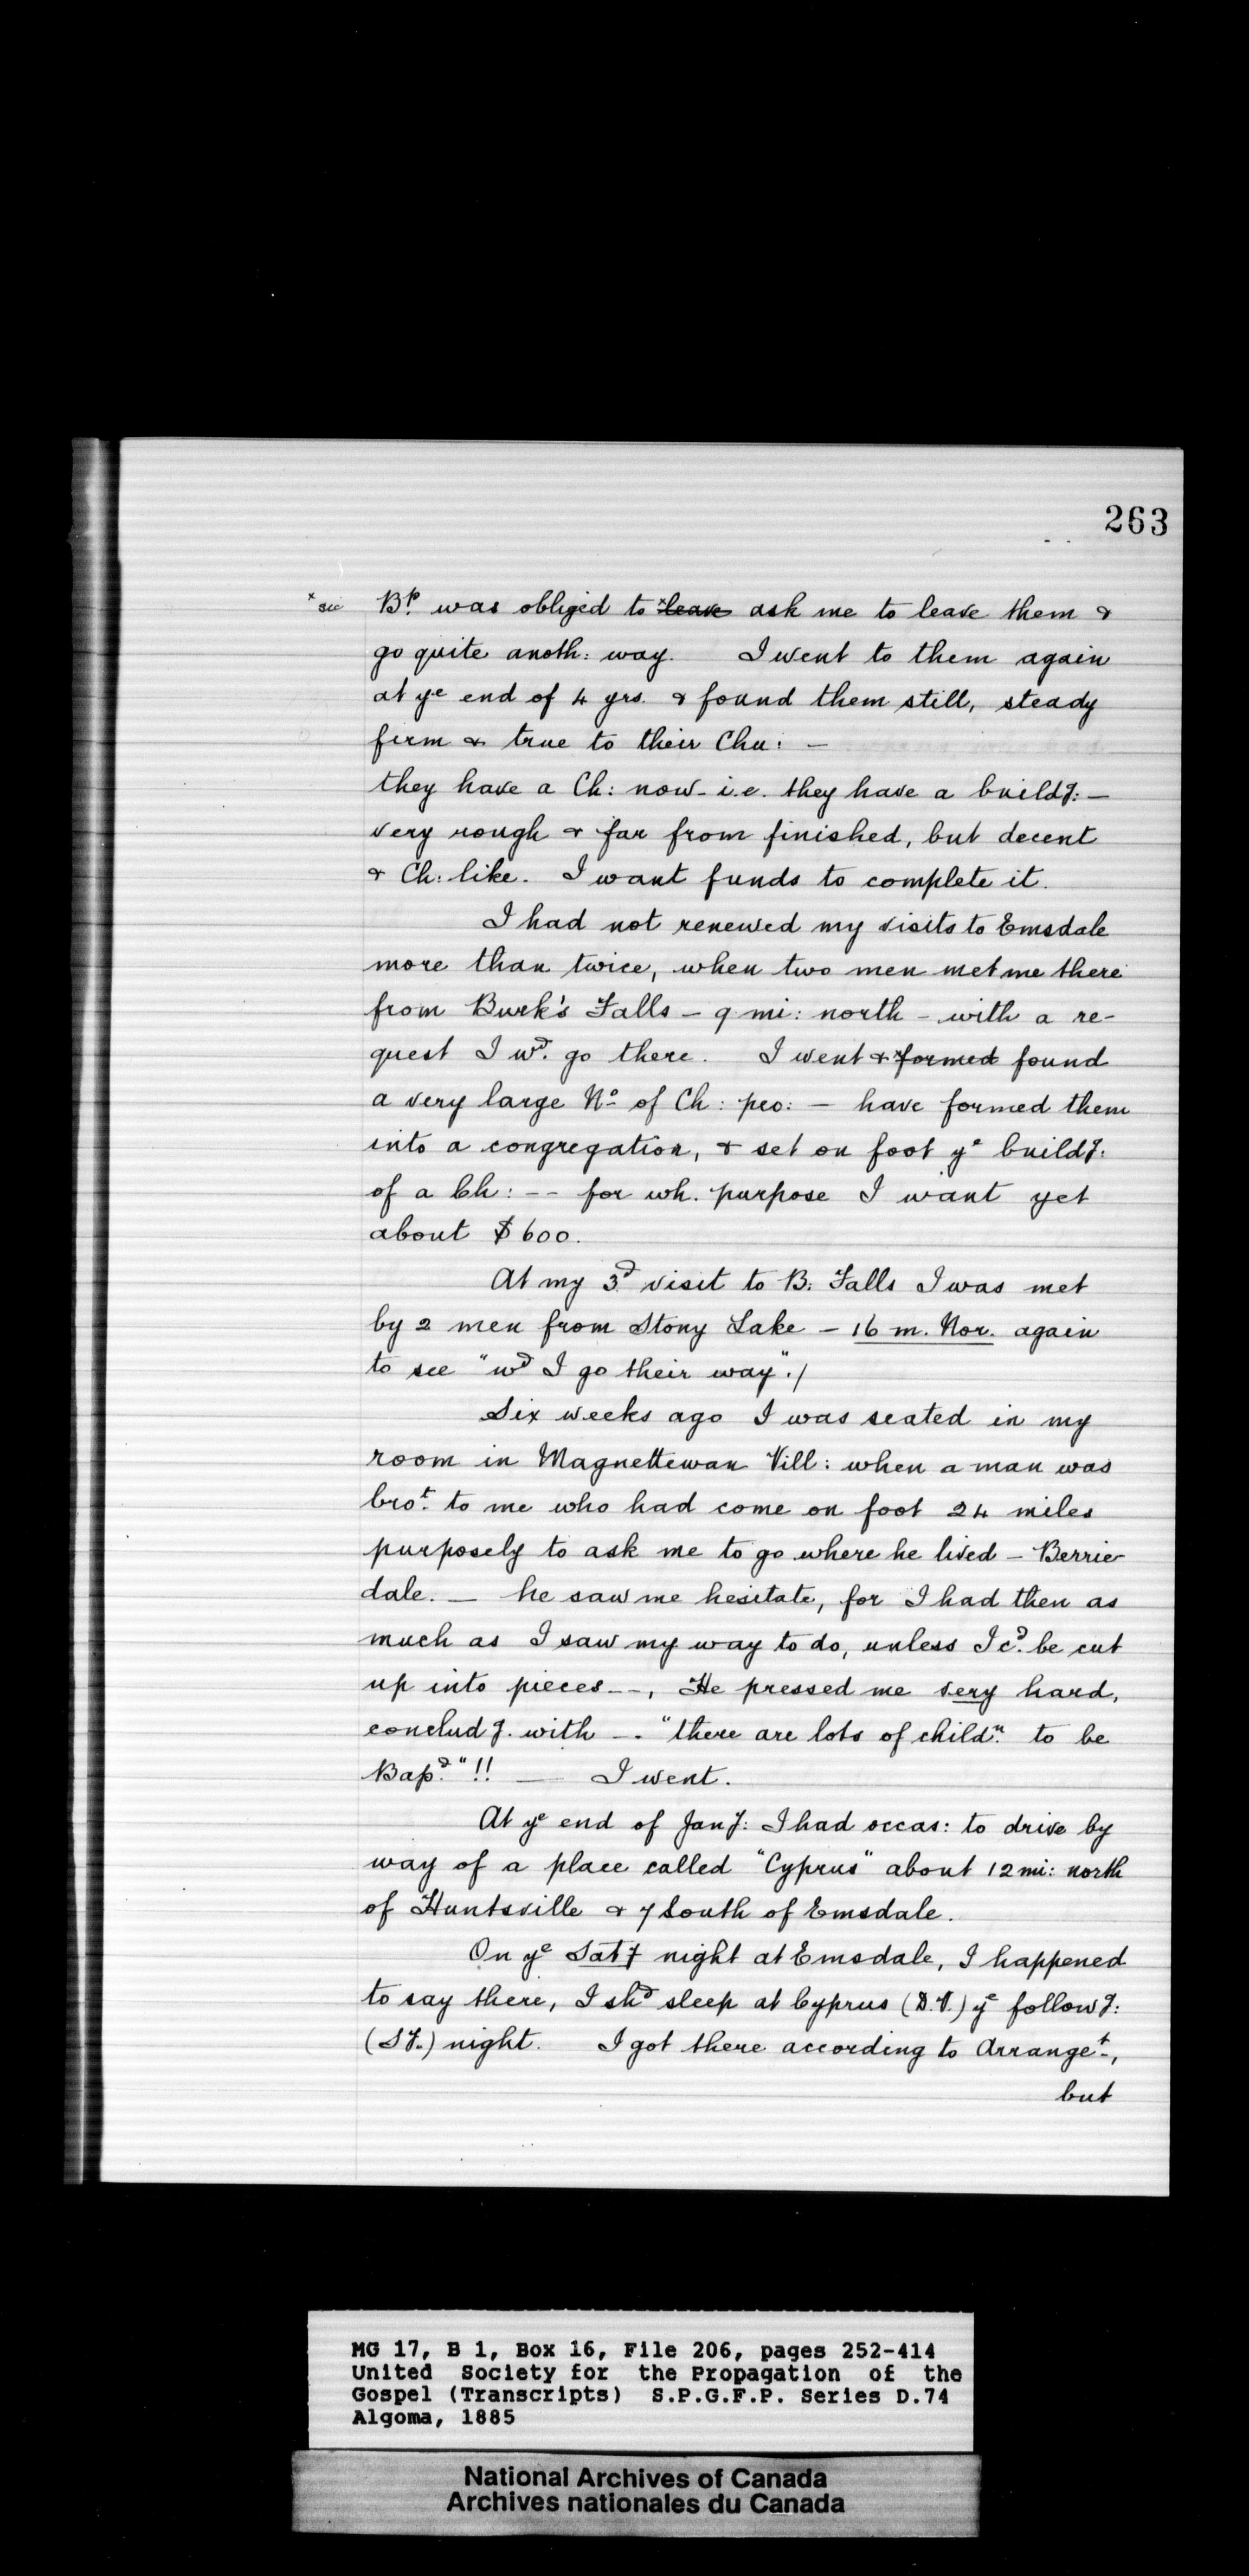 263
x sic Bp. was obliged to xleave ask me to leave them &
go quite anoth: way. I went to them again
at ye end of 4 yrs. & found them still, steady
firm & true to their Chu: —
they have a Ch: now - i.e. they have a buildg: —
very rough & far from finished, but decent
& Ch: like. I want funds to complete it.
I had not renewed my visits to Emsdale
more than twice, when two men met me there
from Burk's Falls — 9 mi: north — with a re-
quest I wd. go there. I went & xformed found
a very large No of Ch: peo: — have formed them
into a congregation, & set on foot ye buildg:
of a Ch: -- for wh. purpose I want yet
about $600.
At my 3d visit to B. Falls I was met
by 2 men from Stony Lake — 16 m. Nor. again
to see "wd I go their way"./
Six weeks ago I was seated in my
room in Magnettewan Vill: when a man was
brot. to me who had come on foot 24 miles
purposely to ask me to go where he lived — Berrie-
dale. — he saw me hesitate, for I had then as
much as I saw my way to do, unless I cd. be cut
up into pieces --, He pressed me very hard,
concludg. with —. "there are lots of childn. to be
Bapd."!! — I went.
At ye end of Jany: I had occas: to drive by
way of a place called "Cyprus" about 12 mi: north
of Huntsville & 7 South of Emsdale.
On ye Saty night at Emsdale, I happened
to say there, I shd sleep at Cyprus (D.V.) ye followg:
(Sy.) night. I got there according to Arranget-,
but
MG 17, B 1, Box 16, File 206, pages 252-414
United Society for the Propagation of the
Gospel (Transcripts) S.P.G.F.P. Series D.74
Algoma, 1885
National Archives of Canada
Archives nationales du Canada